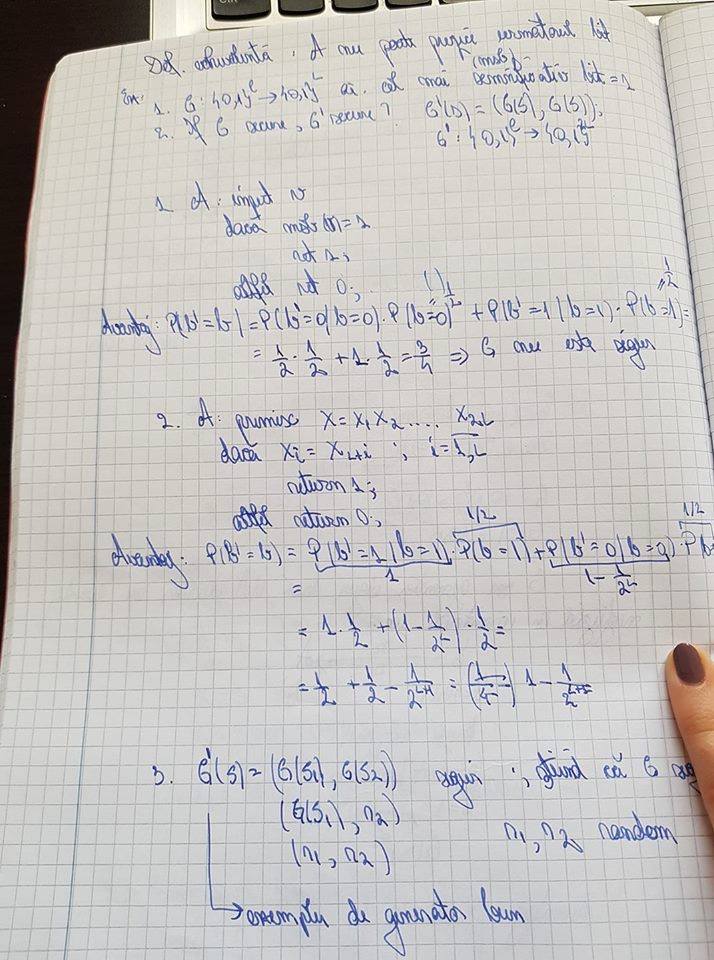 Def. echivalentă : A nu poate prezice următorul bit
Ex: 1. G: {0,1}^l → {0,1}^L aî. cel mai semnificativ bit = 1
(msb)
2. If G secure, G' secure? G'(s) = (G(s), G(s));
G': {0,1}^l → {0,1}^2L
1 A: input r
dacă msb(r)=1
ret 1;
altfel ret 0;
Avantaj: P(b'=b) = P(b'=0|b=0) · P(b=0) + P(b'=1|b=1) · P(b=1) =
1/2 1/2
= 1/2 · 1/2 + 1 · 1/2 = 3/4 ⇒ G nu este sigur
2. A: primesc X = x1 x2 .... x2L
dacă xi = xL+i ; i = 1,L
return 1;
altfel return 0;
1/2 1/2
Avantaj: P(b'=b) = P(b'=1|b=1) · P(b=1) + P(b'=0|b=0) · P(b
1 1 - 1/2^L
=
= 1 · 1/2 + (1 - 1/2^L) · 1/2 =
= 1/2 + 1/2 - 1/2^L+1 = 1 - 1/2^L+1
3. G'(s) = (G(s1), G(s2)) sigur ; știind că G sig
(G(s1), r2)
(r1, r2) r1, r2 random
→ exemplu de generator bun